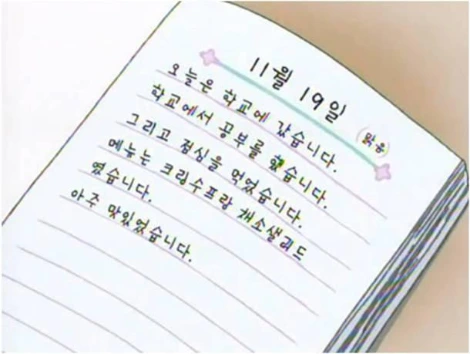 11월 19일
맑음
오늘은 학교에 갔습니다.
학교에서 공부를 했습니다.
그리고 점심을 먹었습니다.
메뉴는 크림수프랑 채소샐러드
였습니다.
아주 맛있었습니다.